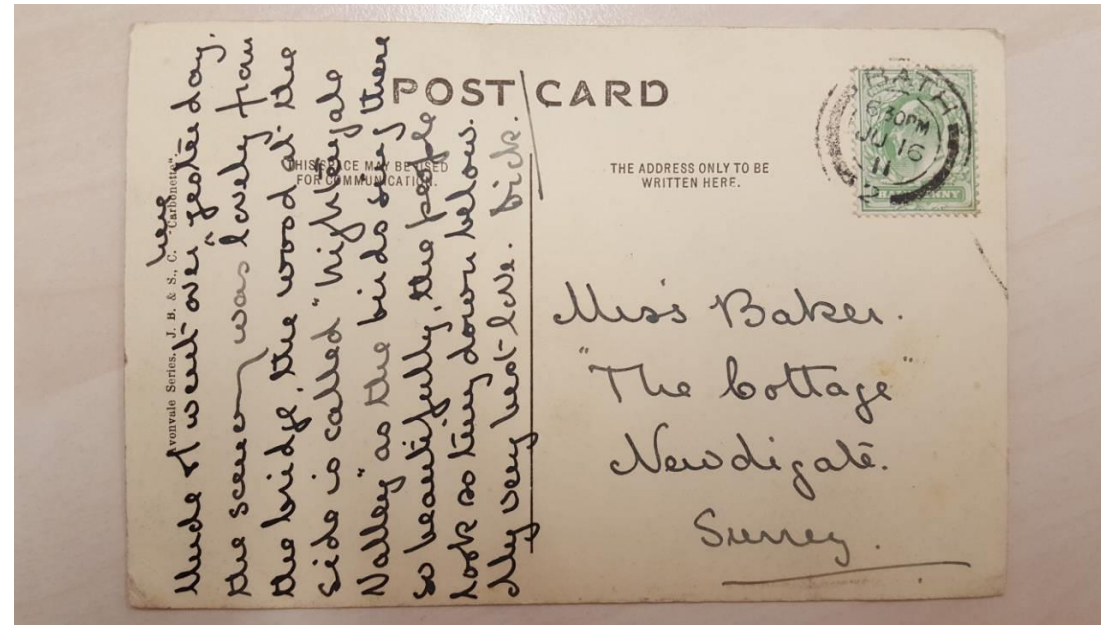 POST CARD
THIS SPACE MAY BE USED
FOR COMMUNICATION.
THE ADDRESS ONLY TO BE
WRITTEN HERE.
Avonvale Series. J. B. & S., C. "Carbonette".
Uncle & I went over here yesterday.
the scenery was lovely from
the bridge, the wood at the
side is called "Nightingale
Valley" as the birds sing there
so beautifully, the people
look so tiny down below.
My very best love.
BATH
6.30PM
JU 16
11
2
Miss Baker.
"The Cottage"
Newdigate.
Surrey.